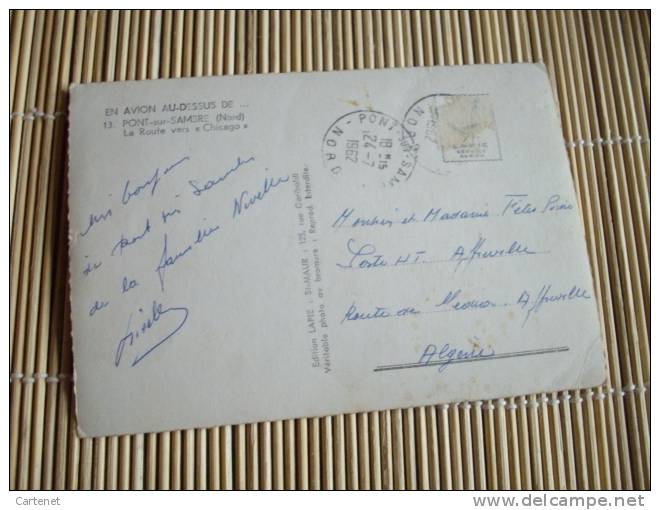 EN AVION AU-DESSUS DE ...
13. PONT-sur-SAMBRE (Nord)
La Route vers « Chicago »
bonjour
de pont sur Sambre
de la famille Nivelle
Edition LAPIE : St-MAUR : 125, rue Garibaldi
Véritable photo au bromure : Reprod. Interdite
PONT-sur-SAM
NORD
18 H15
24-7
1962
NORD
Monsieur et Madame
Poste HT. Affreville
Route de Affreville
Algérie
Cartenet
delcampe.net